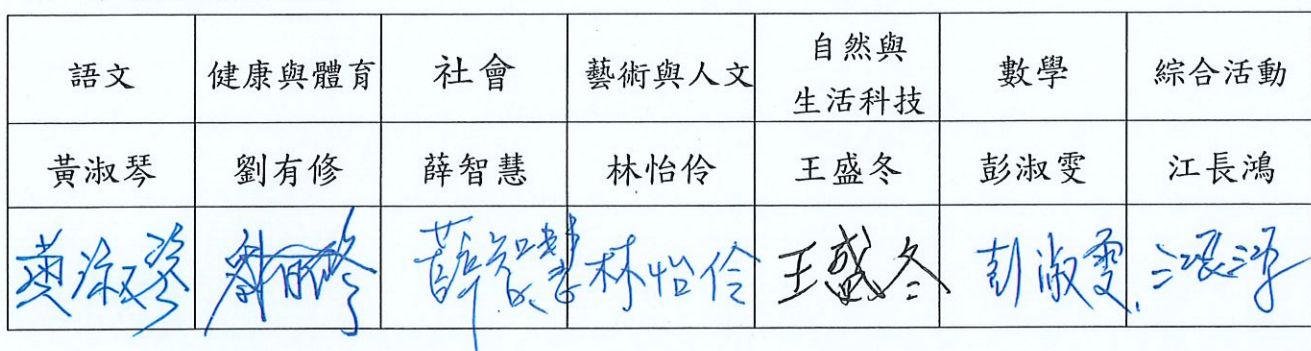 語文 健康與體育 社會 藝術與人文 自然與生活科技 數學 綜合活動
黃淑琴 劉有修 薛智慧 林怡伶 王盛冬 彭淑雯 江長鴻
黃淑琴 劉有修 薛智慧 林怡伶 王盛冬 彭淑雯 江長鴻